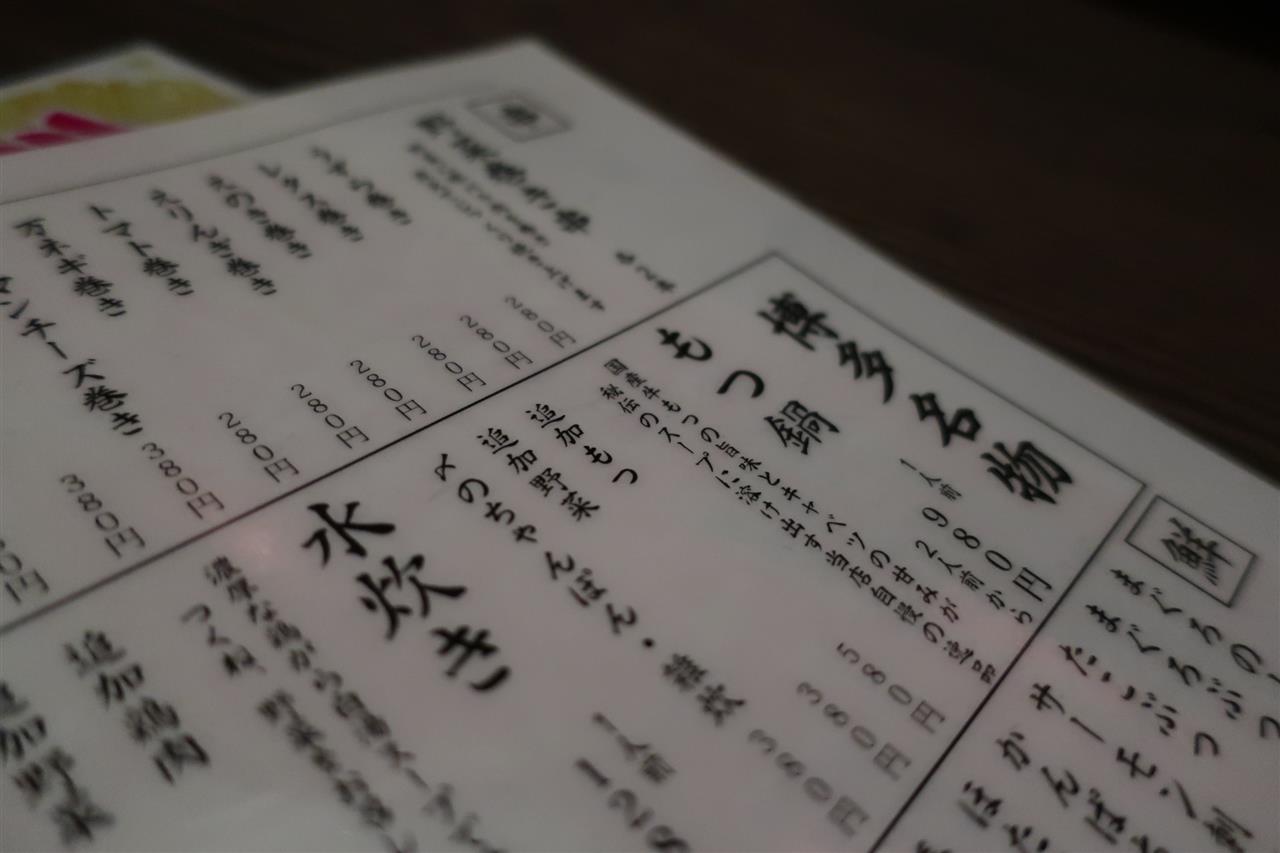 鮮
まぐろの
まぐろぶつ
たこぶつ
サーモン刺
かんぱち
ほた
博多名物
もつ鍋
1人前 980円
2人前から
国産牛もつの旨味とキャベツの甘みが
秘伝のスープに溶け出す当店自慢の逸品
追加もつ 580円
追加野菜 380円
〆のちゃんぽん・雑炊 380円
水炊き
1人前
128
濃厚な鶏がら白湯スープ
つくね、野菜
追加鶏肉
追加野菜
串
野菜巻き串
うずら巻き 280円
レタス巻き 280円
えのき巻き 280円
えりんぎ巻き 280円
トマト巻き 280円
万ネギ巻き 280円
マンチーズ巻き 380円
380円